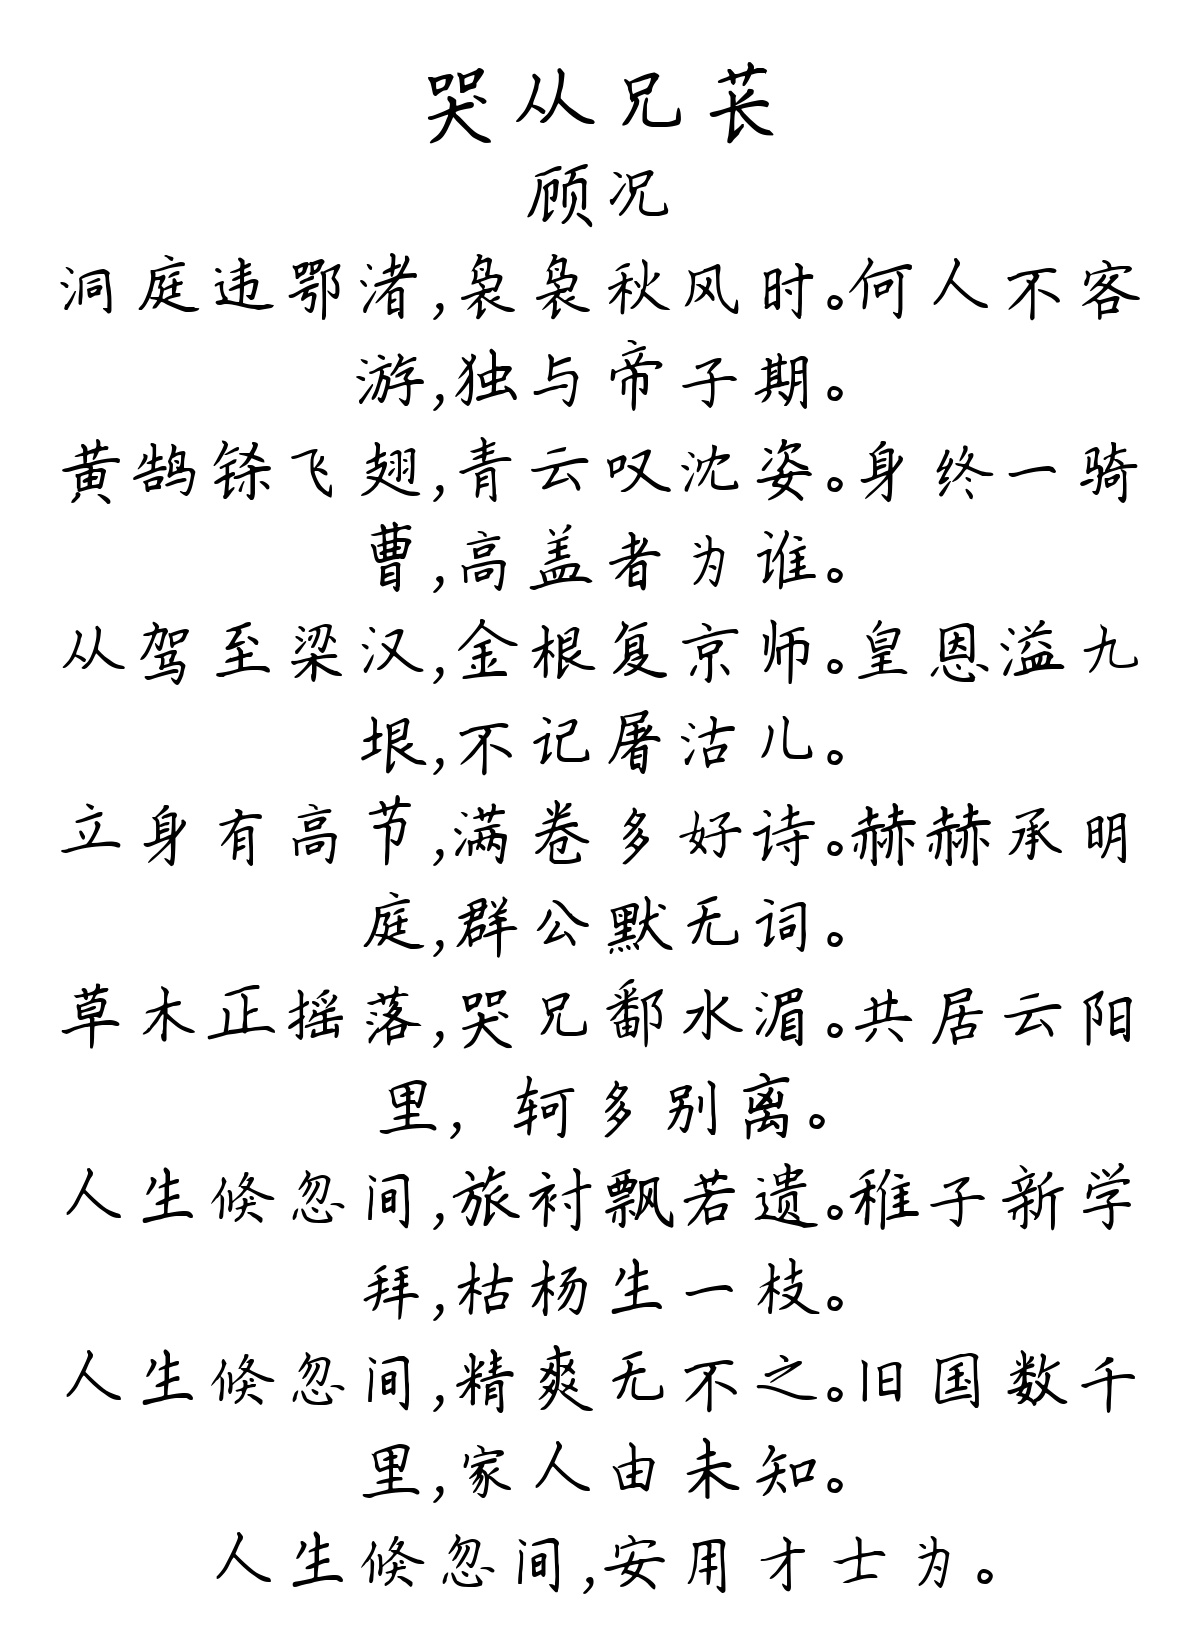 哭从兄苌
顾况
洞庭违鄂渚,袅袅秋风时。何人不客
游,独与帝子期。
黄鹄铩飞翅,青云叹沈姿。身终一骑
曹,高盖者为谁。
从驾至梁汉,金根复京师。皇恩溢九
垠,不记屠沽儿。
立身有高节,满卷多好诗。赫赫承明
庭,群公默无词。
草木正摇落,哭兄鄱水湄。共居云阳
里，轲多别离。
人生倏忽间,旅衬飘若遗。稚子新学
拜,枯杨生一枝。
人生倏忽间,精爽无不之。旧国数千
里,家人由未知。
人生倏忽间,安用才士为。